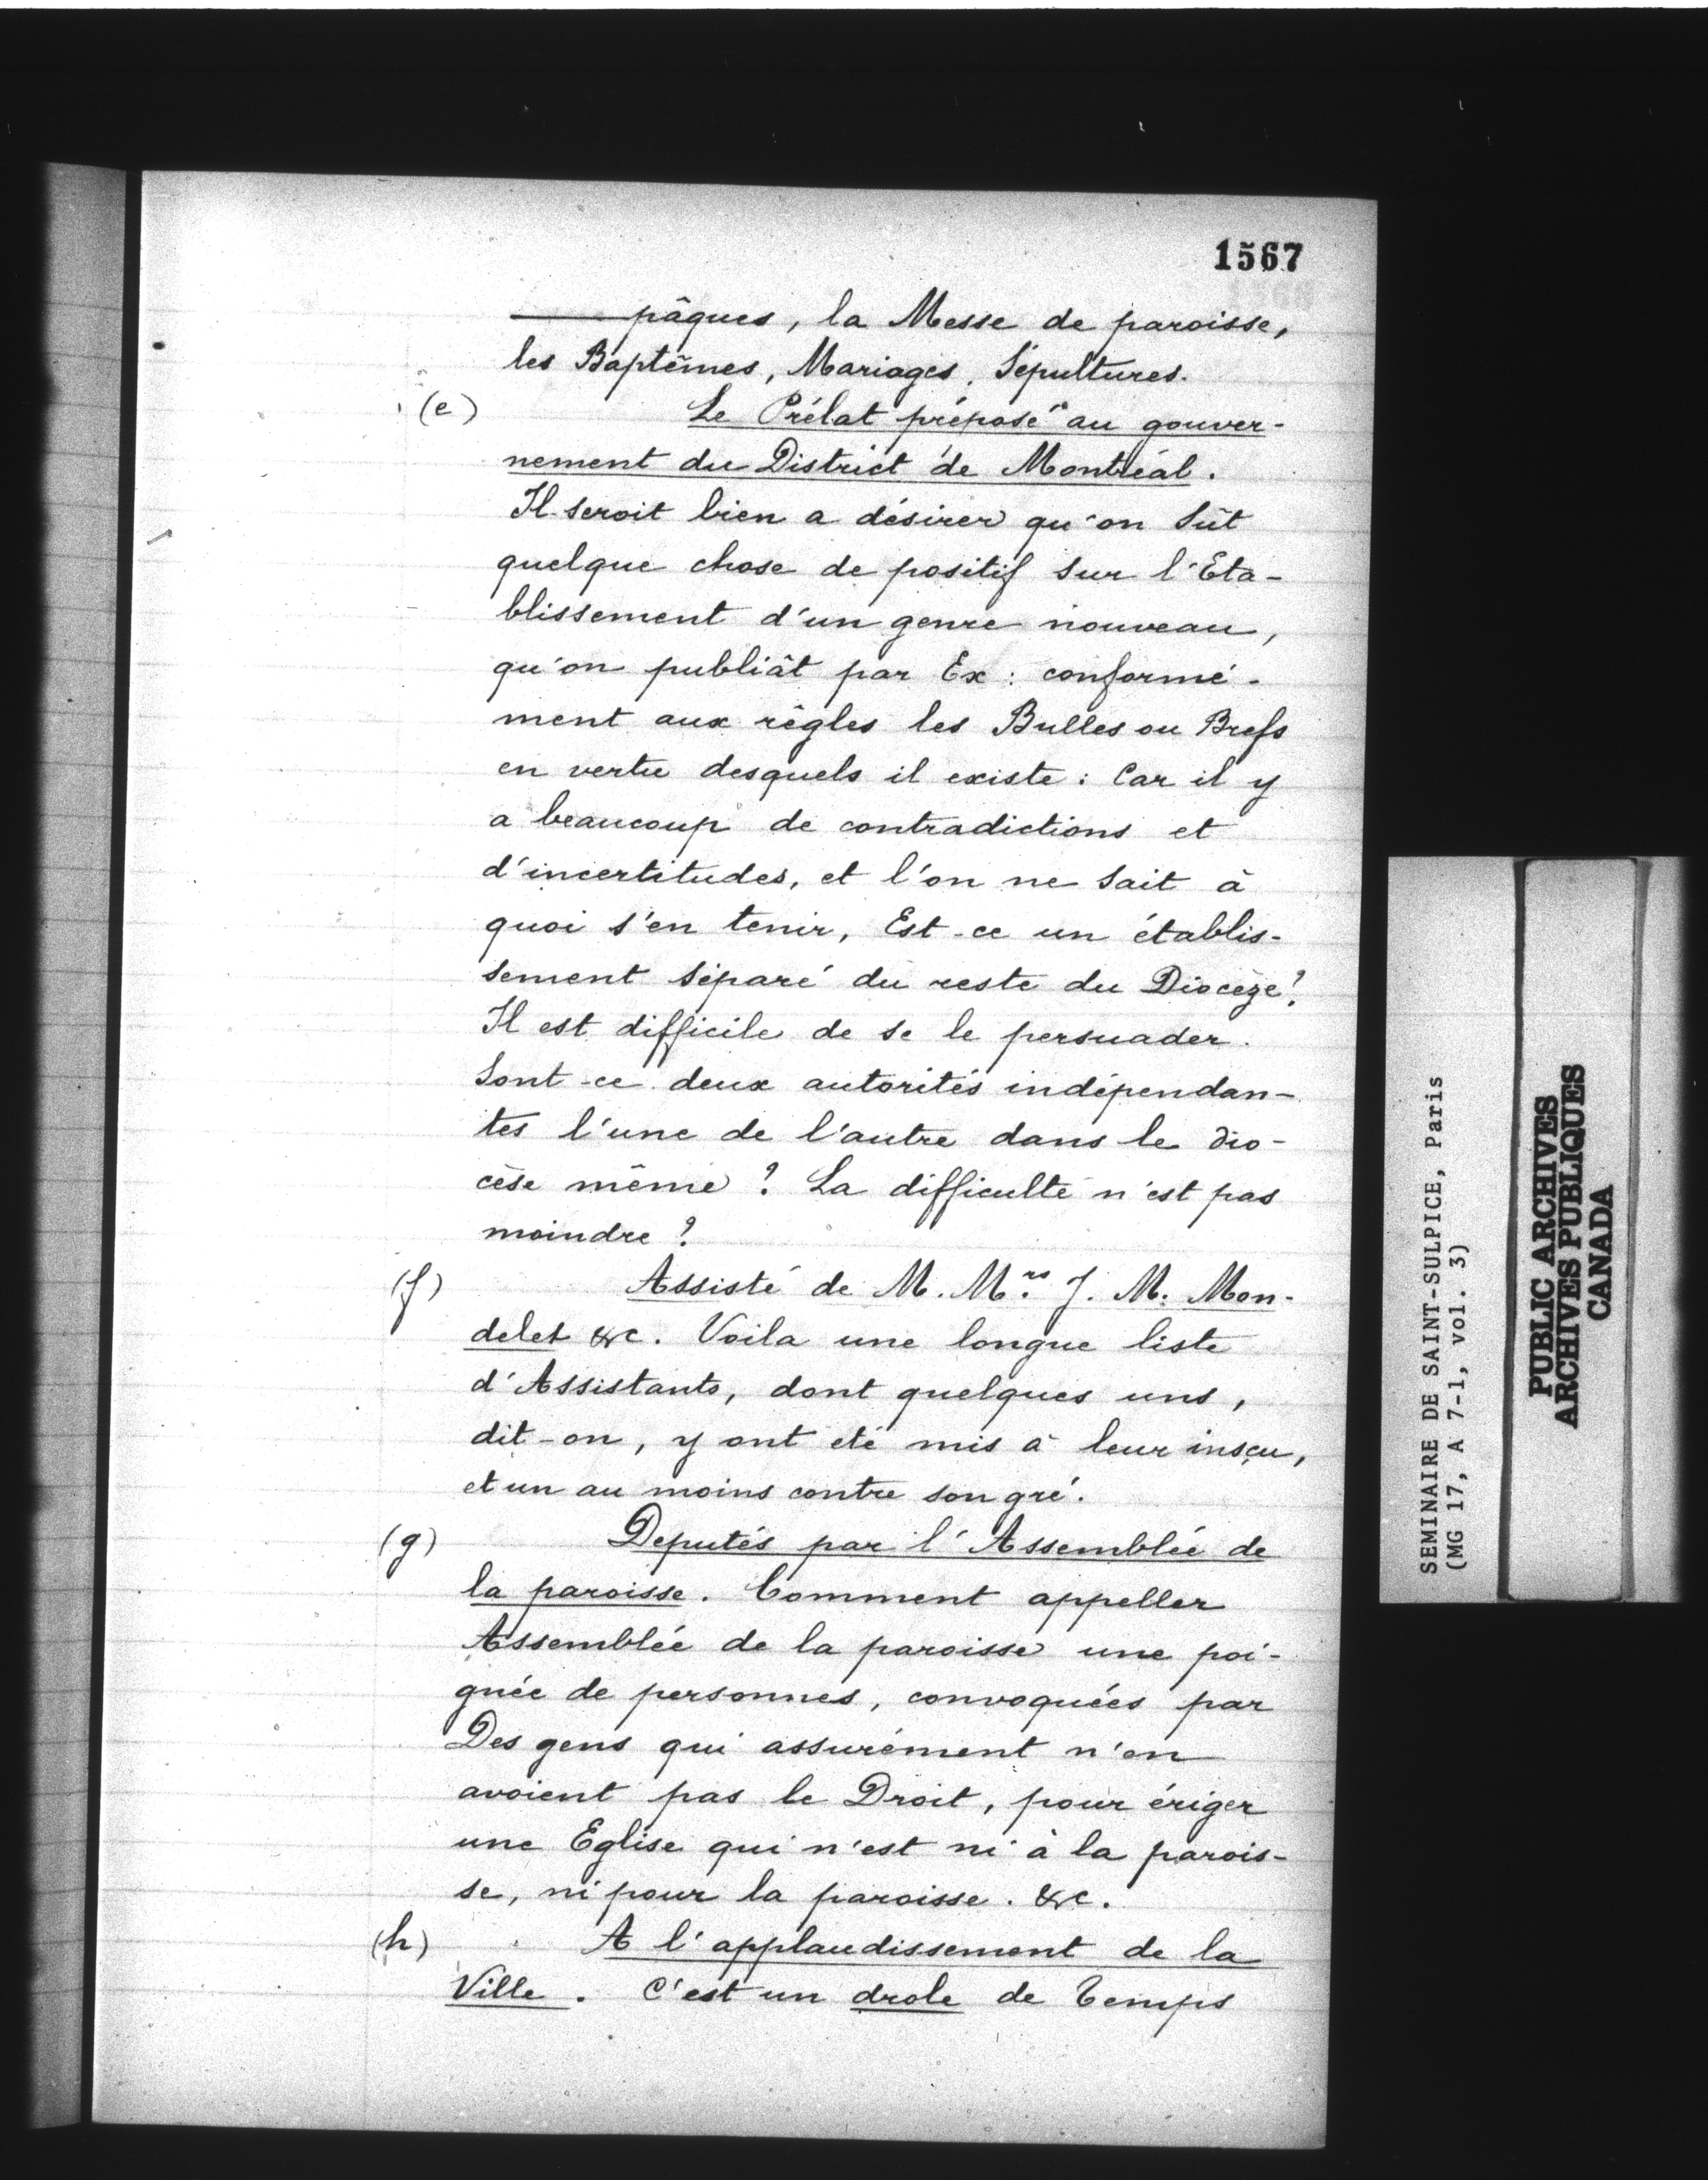 1567
pâques, la Messe de paroisse,
les Baptêmes, Mariages, Sépultures.
(e) Le Prélat préposé au gouver-
nement du District de Montréal.
Il seroit bien a désirer qu'on sût
quelque chose de positif sur l'Eta-
blissement d'un genre nouveau,
qu'on publiât par Ex: conformé-
ment aux règles les Bulles ou Brefs
en vertu desquels il existe: Car il y
a beaucoup de contradictions et
d'incertitudes, et l'on ne sait à
quoi s'en tenir, Est-ce un établis-
sement séparé du reste du Diocèze?
Il est difficile de se le persuader.
Sont-ce deux autorités indépendan-
tes l'une de l'autre dans le dio-
cèse même? La difficulté n'est pas
moindre?
(f) Assisté de M. Mrs. J. M. Mon-
delet &c. Voila une longue liste
d'Assistants, dont quelques uns,
dit-on, y ont été mis à leur insçu,
et un au moins contre son gré.
(g) Deputés par l'Assemblée de
la paroisse. Comment appeller
Assemblée de la paroisse une poi-
gnée de personnes, convoquées par
Des gens qui assurément n'en
avoient pas le Droit, pour ériger
une Eglise qui n'est ni à la parois-
se, ni pour la paroisse. &c.
(h) A l'applaudissement de la
Ville. C'est un drole de Temps
SEMINAIRE DE SAINT-SULPICE, Paris
(MG 17, A 7-1, vol. 3)
PUBLIC ARCHIVES
ARCHIVES PUBLIQUES
CANADA